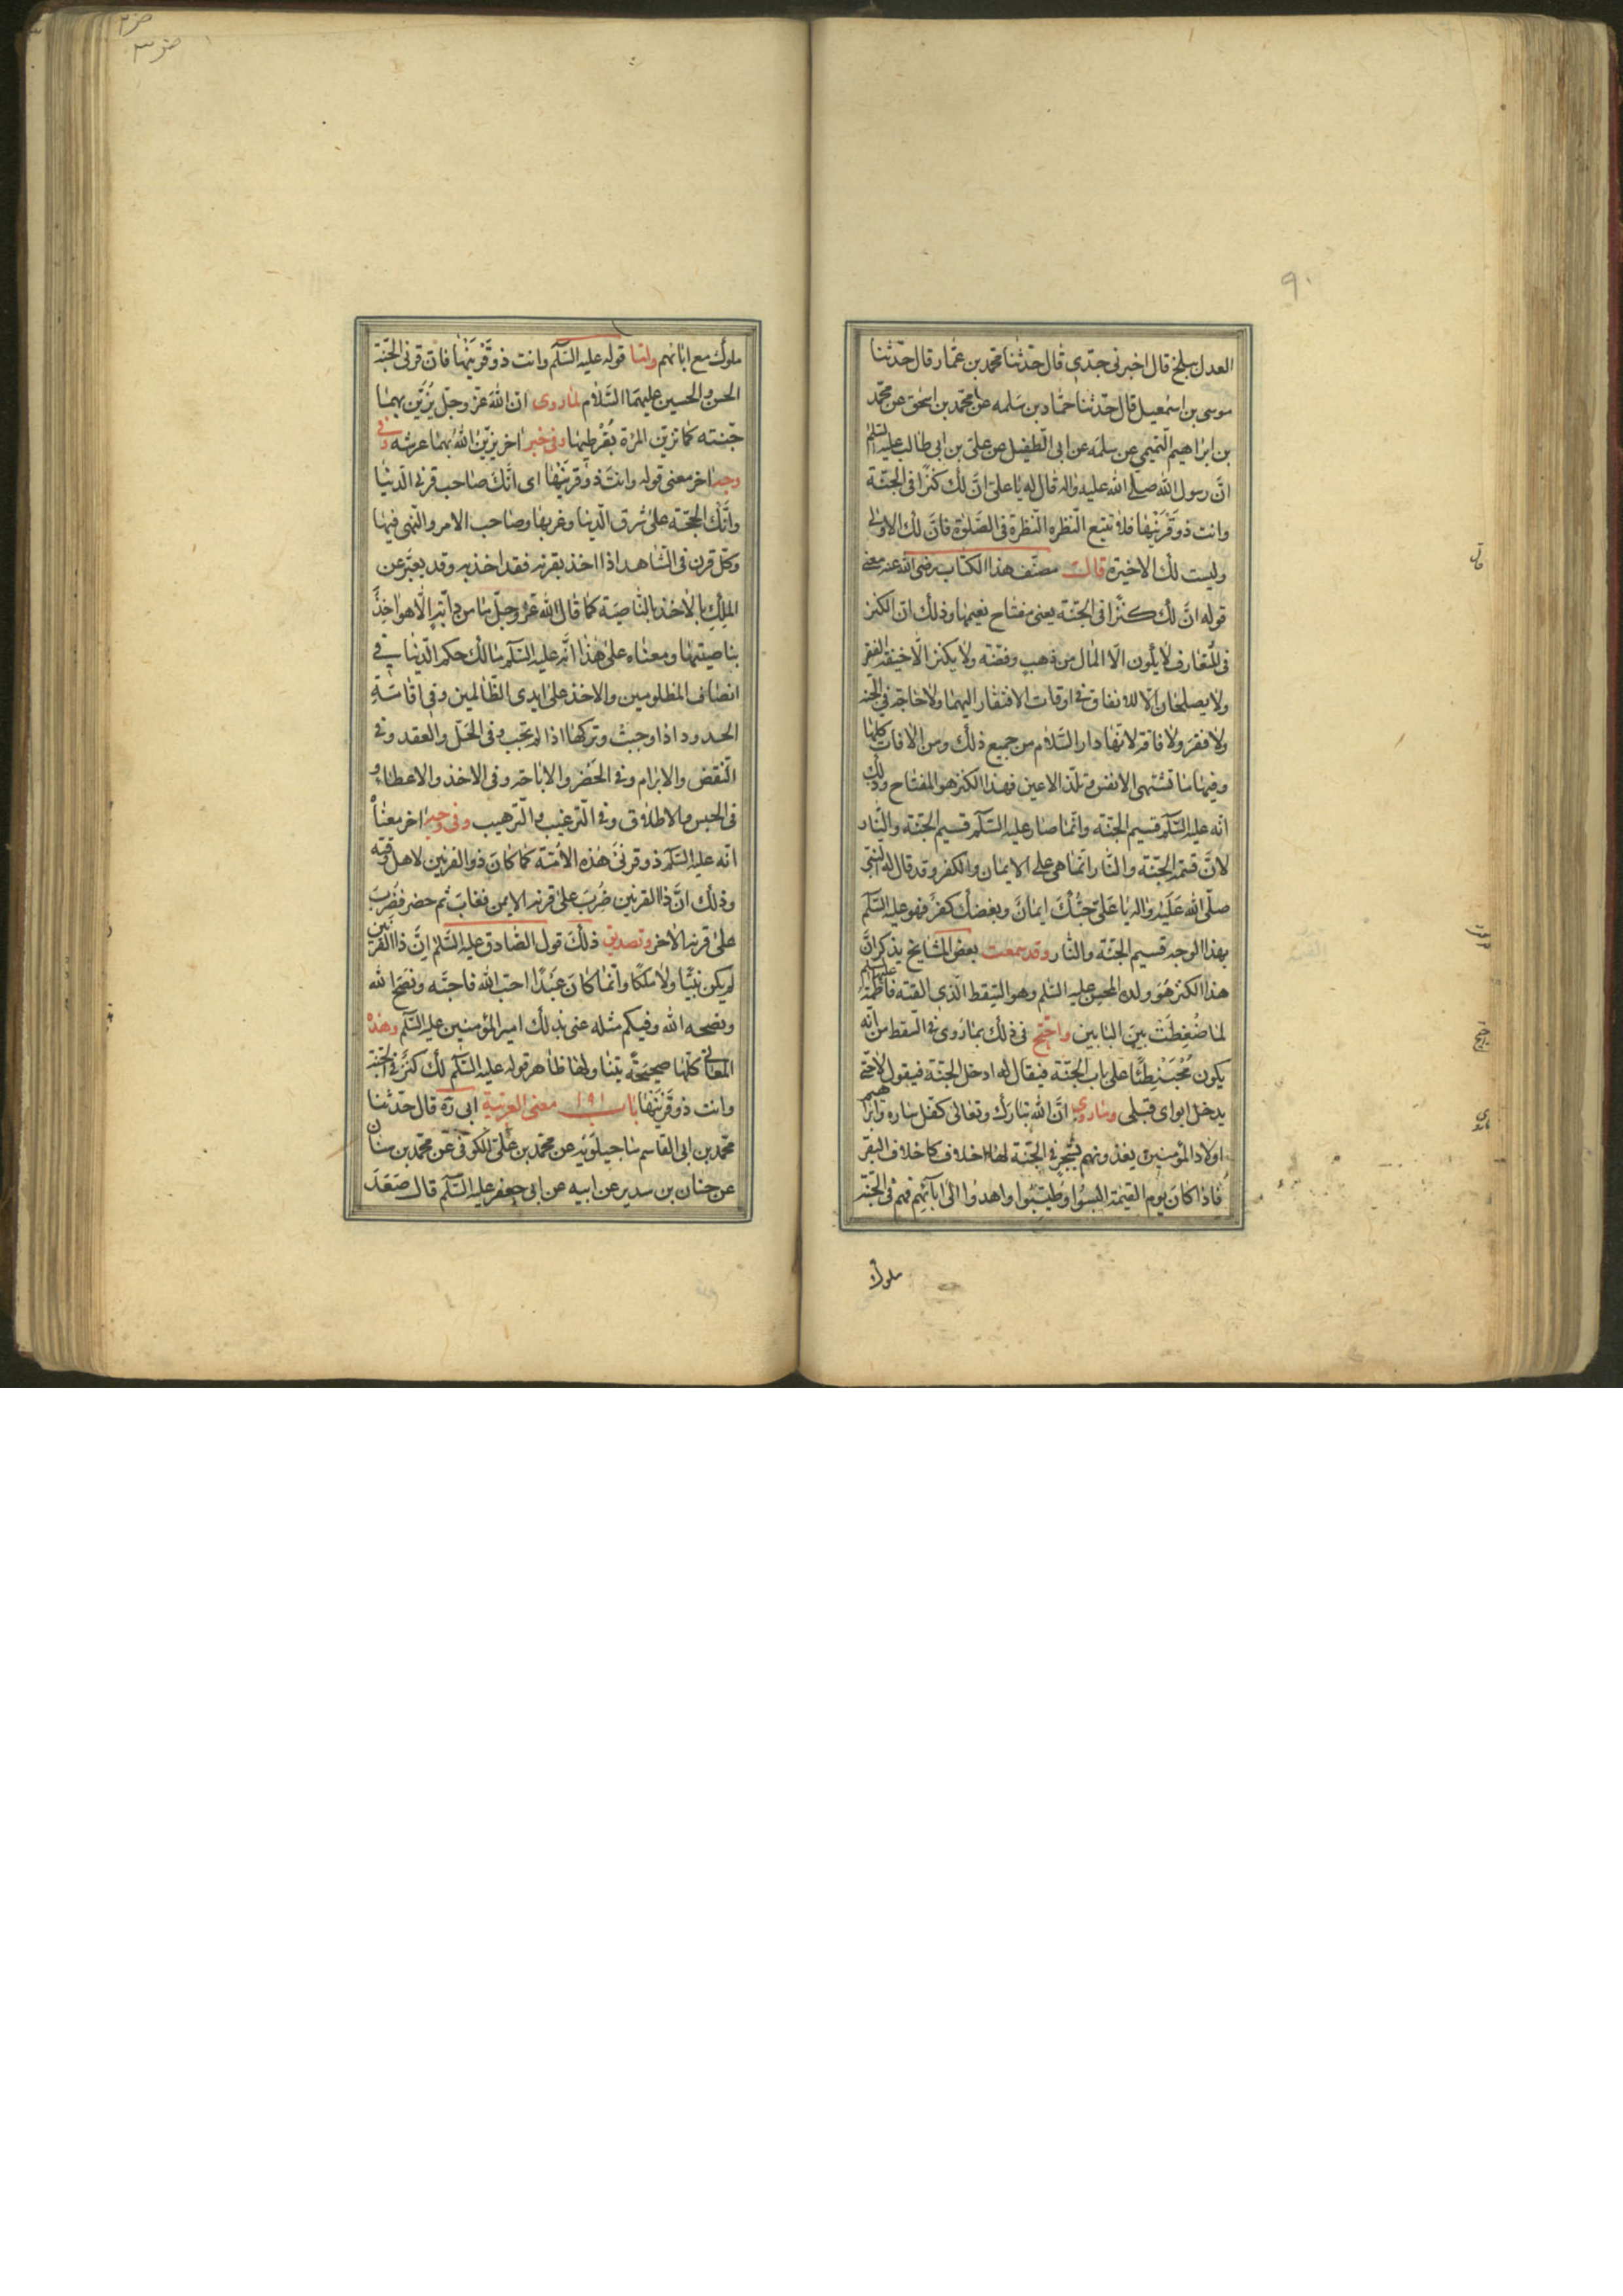 ٩٠
العدل ببلخ قال اخبرنى جدّى قال حدّثنا محمد بن عمّار قال حدّثنا
موسى بن اسمعيل قال حدّثنا حمّاد بن سلمه عن محمّد بن اسحق عن محمّد
بن ابراهيم التّميمى عن سلمه عن ابى الطّفيل عن علىّ بن ابى طالب عليه السّلم
انّ رسول اللّه صلى اللّه عليه واله قال له يا علىّ انّ لك كنزًا فى الجنّة
وانت ذو قَرْنَيْها فلا تتبع النّظره النّظرة فى الصّلوة فانّ لك الاولى
وليست لك الاخيرة قال مصنّف هذا الكتاب رضى اللّه عنه معنى
قوله انّ لك كنزًا فى الجنّة يعنى مفتاح نعيمها وذلك انّ الكنز
فى المتعارف لا يكون الّا المال من ذهب وفضّة ولا يكنز الّا خيفة الفقر
ولا يصلحان الّا للانفاق فى اوقات الافتقار اليهما ولا حاجة فى الجنّة
ولا فقر ولا فاقة لانّها دار السّلام من جميع ذلك ومن الافات كلّها
وفيها ما تشتهى الانفس وتلذّ الاعين فهذا الكنز هو المفتاح وذلك
انّه عليه السّلم قسيم الجنّة وانّما صار عليه السّلم قسيم الجنّة والنّار
لانّ قسمة الجنّة والنّار انّما هى على الايمان والكفر وقد قال له النّبى
صلّى اللّه عَلَيْه واله يا عَلىّ حبّك ايمانٌ وبغضك كفرٌ فهو عليه السّلم
بهذا الوجه قسيم الجنّة والنّار وقد سمعت بعض المشايخ يذكر انّ
هذا الكنز هُوَ ولده المحسن عليه السّلم وهو السّقط الّذى القته فاطمة عليها السلم
لما ضُغِطَتْ بين البابين واحتجّ فى ذلك بما رُوى فى السّقط من انّه
يكون مُحْبَنْطِئًا على باب الجنّة فيقال له ادخل الجنّة فيقول لا حتّى
يدخل ابواى قبلى وما روى انّ اللّه تبارك وتعالى كفّل ساره وابراهيم
اولاد المؤمنين يغذونهم بشجر فى الجنّة لها اخلاف كاخلاف البقر
فاذا كان يوم القيمة البسوا وطيّبوا واهدوا الى ابائهم فهم فى الجنّة
ملوك
ملوك مع ابائهم وامّا قوله عليه السّلم وانت ذو قَرْنَيْها فانّ قرنى الجنّة
الحسن والحسين عليهما السّلام لما روى انّ اللّه عزّ وجلّ يُزَيّن بهما
جنّته كما تزيّن المرأة بقُرطيها وفى خبر اخر يزيّن اللّه بهما عرشه وفى
وجه اخر معنى قوله وانت ذو قرنيها اى انّك صاحب قرنى الدّنيا
وانّك الحجّة على شرق الدّنيا وغربها وصاحب الامر والنّهى فيها
وكلّ قرن فى الشّاهد اذا اخذ بقرنه فقد اخذ به وقد يعبّر عن
الملك بالاخذ بالنّاصية كما قال اللّه عزّ وجلّ ما من دابّة الّا هو اخذٌ
بناصيتها ومعناه على هذا انّه عليه السّلم مالك حكم الدّنيا فى
انصاف المظلومين والاخذ على ايدى الظّالمين وفى اقامة
الحدود اذا وجبت وتركها اذا لم تجب وفى الحلّ والعقد وفى
النّقض والابرام وفى الحَضْر والاباحة وفى الاخذ والاعطاء و
فى الحبس والاطلاق وفى التّرغيب والتّرهيب وفى وجه اخر معناه
انّه عليه السّلم ذو قرنَىْ هذه الامّة كما كان ذو القرنين لاهل وقته
وذلك انّ ذا القرنين ضُرِبَ على قرنه الايمن فغابَ ثم حضر فضُرِبَ
على قرنه الاخر وتصديق ذلك قول الصّادق عليه السّلم انّ ذا القرنين
لم يكن نبيًّا ولا ملكًا وانّما كان عَبْدًا احبّ اللّه فاحبّه ونصح للّه
ونصحه اللّه وفيكم مثله عنى بذلك امير المؤمنين عليه السّلم وهذه
المعانى كلّها صحيحة يتناولها ظاهر قوله عليه السّلم لك كنزٌ فى الجنّة
وانت ذو قَرْنَيْها باب ١٩١ معنى العربية ابى ره قال حدّثنا
محمّد بن ابى القاسم ماجيلويه عن محمّد بن على الكوفى عن محمّد بن سنان
عن حنان بن سدير عن ابيه عن ابى جعفر عليه السّلم قال صَعَدَ